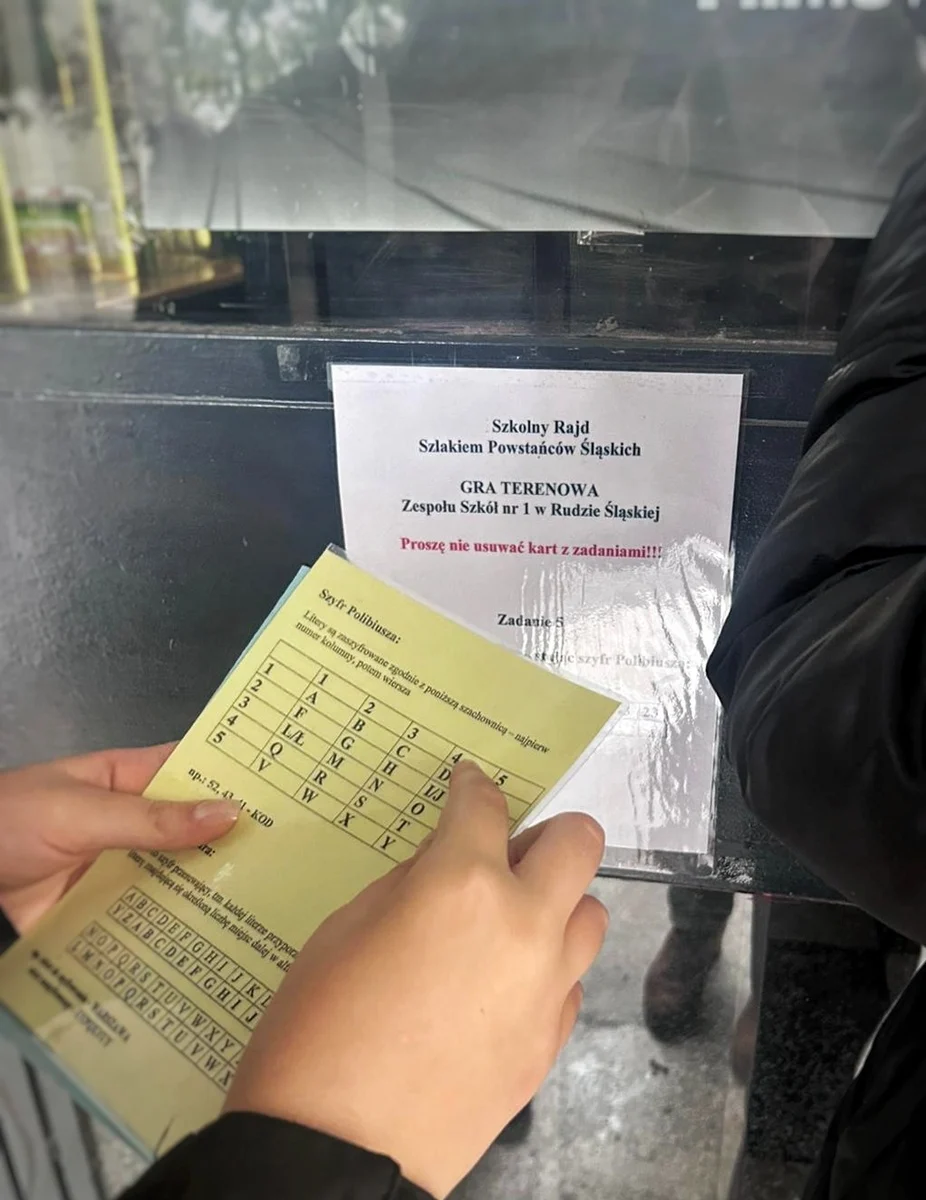 Szkolny Rajd
Szlakiem Powstańców Śląskich
GRA TERENOWA
Zespołu Szkół nr 1 w Rudzie Śląskiej
Proszę nie usuwać kart z zadaniami!!!
Zadanie 5
szyfr Polibiusza:
23
Szyfr Polibiusza:
Litery są zaszyfrowane zgodnie z poniższą szachownicą – najpierw
numer kolumny, potem wiersza
1 2 3 4 5
1 A B C D
2 F G H I/J
3 L/Ł M N O
4 Q R S T
5 V W X Y
np.: 52, 43, 41 - KOD
szyfr przesuwający, tzn. każdej literze
literę znajdującą się określoną liczbę miejsc dalej w
A B C D E F G H I J K L
Y Z A B C D E F G H I J
N O P Q R S T U V W X Y
L M N O P Q R S T U V W X
WARSZAWA